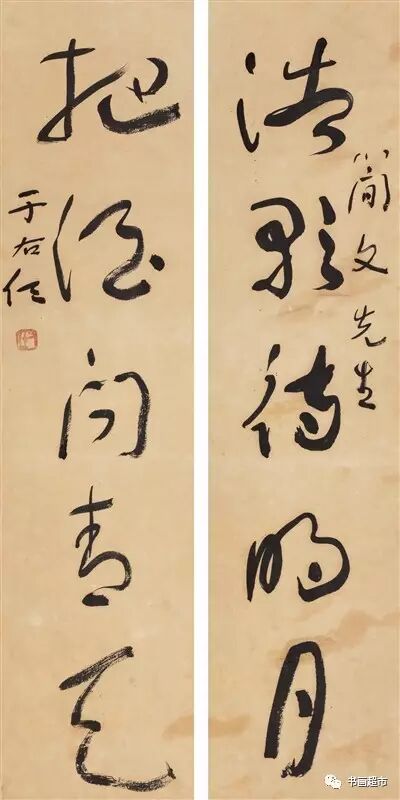 浩歌待明月
簡文先生
把酒問青天
于右任
书画超市